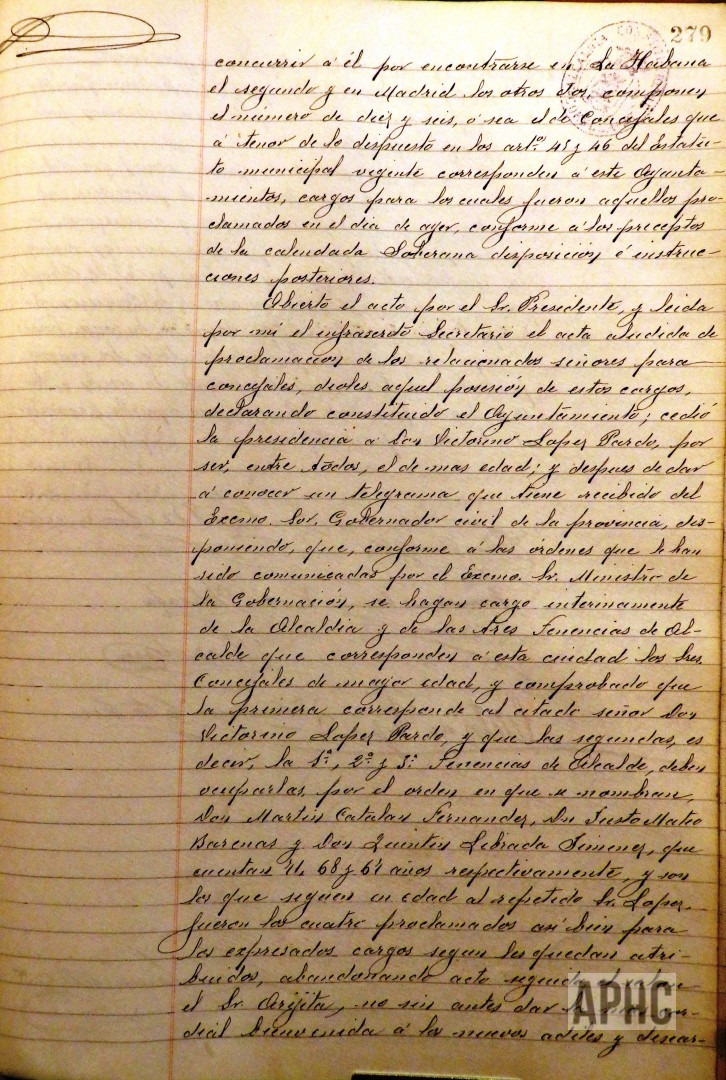 279
concurrir á él por encontrarse en La Habana
el segundo y en Madrid los otros dos, componen
el número de diez y seis, ó sea el de Concejales que
á tenor de lo dispuesto en los artos 45 y 46 del Estatu-
to municipal vigente corresponden á este Ayunta-
miento, cargos para los cuales fueron aquellos pro-
clamados en el dia de ayer, conforme á los preceptos
de la calendada Soberana disposición é instruc-
ciones posteriores.
Abierto el acto por el Sr. Presidente, y leida
por mí el infrascrito Secretario el acta aludida de
proclamación de los relacionados señores para
concejales, dioles aquel posesión de estos cargos,
declarando constituido el Ayuntamiento; cedió
la presidencia á Don Victorino Lopez Pardo, por
ser, entre todos, el de mas edad; y despues de dar
á conocer un telegrama que tiene recibido del
Excmo. Sor. Gobernador civil de la provincia, dis-
poniendo, que, conforme á las órdenes que le han
sido comunicadas por el Excmo. Sr. Ministro de
la Gobernación, se hagan cargo interinamente
de la Alcaldia y de las tres Tenencias de Al-
calde que corresponden á esta ciudad los Sres.
Concejales de mayor edad, y comprobado que
la primera corresponde al citado señor Don
Victorino Lopez Pardo, y que las segundas, es
decir, la 1ª, 2ª y 3ª Tenencias de Alcalde, deben
ocuparlas, por el orden en que se nombran,
Don Martin Catalan Fernandez, Dn Justo Mateo
Barenas y Don Quintin Librada Jimenez, que
cuentan 71, 68 y 67 años respectivamente, y son
los que siguen en edad al repetido Sr. Lopez,
fueron los cuatro proclamados así bien para
los expresados cargos segun les quedan atri-
buidos, abandonando acto seguido
el Sr. Arijita, no sin antes dar
dial bienvenida á los nuevos ediles y desear-
APHC